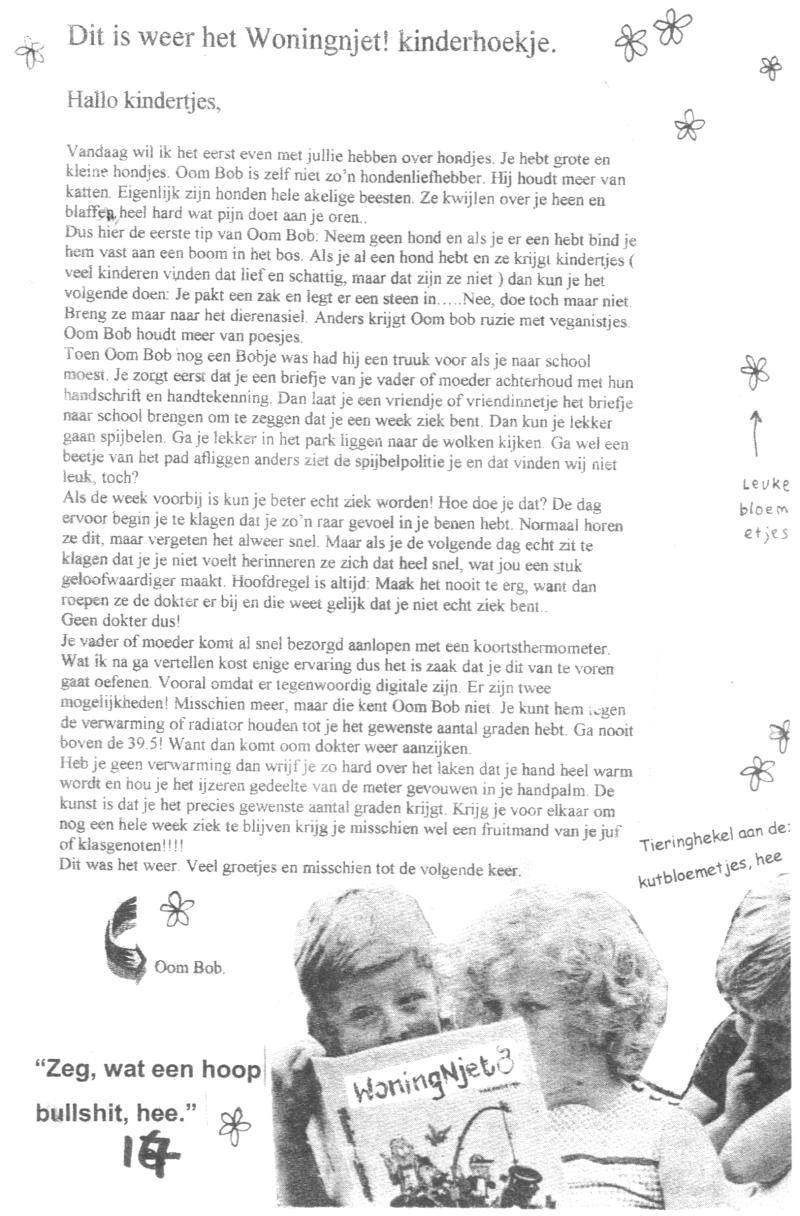 Dit is weer het Woningnjet! kinderhoekje.
Hallo kindertjes,
Vandaag wil ik het eerst even met jullie hebben over hondjes. Je hebt grote en
kleine hondjes. Oom Bob is zelf niet zo'n hondenliefhebber. Hij houdt meer van
katten. Eigenlijk zijn honden hele akelige beesten. Ze kwijlen over je heen en
blaffen heel hard wat pijn doet aan je oren..
Dus hier de eerste tip van Oom Bob: Neem geen hond en als je er een hebt bind je
hem vast aan een boom in het bos. Als je al een hond hebt en ze krijgt kindertjes (
veel kinderen vinden dat lief en schattig, maar dat zijn ze niet ) dan kun je het
volgende doen: Je pakt een zak en legt er een steen in.....Nee, doe toch maar niet.
Breng ze maar naar het dierenasiel. Anders krijgt Oom bob ruzie met veganistjes.
Oom Bob houdt meer van poesjes.
Toen Oom Bob nog een Bobje was had hij een truuk voor als je naar school
moest. Je zorgt eerst dat je een briefje van je vader of moeder achterhoud met hun
handschrift en handtekenning. Dan laat je een vriendje of vriendinnetje het briefje
naar school brengen om te zeggen dat je een week ziek bent. Dan kun je lekker
gaan spijbelen. Ga je lekker in het park liggen naar de wolken kijken. Ga wel een
beetje van het pad afliggen anders ziet de spijbelpolitie je en dat vinden wij niet
leuk, toch?
Als de week voorbij is kun je beter echt ziek worden! Hoe doe je dat? De dag
ervoor begin je te klagen dat je zo'n raar gevoel in je benen hebt. Normaal horen
ze dit, maar vergeten het alweer snel. Maar als je de volgende dag echt zit te
klagen dat je je niet voelt herinneren ze zich dat heel snel, wat jou een stuk
geloofwaardiger maakt. Hoofdregel is altijd: Maak het nooit te erg, want dan
roepen ze de dokter er bij en die weet gelijk dat je niet echt ziek bent..
Geen dokter dus!
Je vader of moeder komt al snel bezorgd aanlopen met een koortsthermometer.
Wat ik na ga vertellen kost enige ervaring dus het is zaak dat je dit van te voren
gaat oefenen. Vooral omdat er tegenwoordig digitale zijn. Er zijn twee
mogelijkheden! Misschien meer, maar die kent Oom Bob niet. Je kunt hem tegen
de verwarming of radiator houden tot je het gewenste aantal graden hebt. Ga nooit
boven de 39.5! Want dan komt oom dokter weer aanzijken.
Heb je geen verwarming dan wrijf je zo hard over het laken dat je hand heel warm
wordt en hou je het ijzeren gedeelte van de meter gevouwen in je handpalm. De
kunst is dat je het precies gewenste aantal graden krijgt. Krijg je voor elkaar om
nog een hele week ziek te blijven krijg je misschien wel een fruitmand van je juf
of klasgenoten!!!!
Dit was het weer. Veel groetjes en misschien tot de volgende keer.
Oom Bob.
Leuke
bloem
etjes
Tieringhekel aan de:
kutbloemetjes, hee
"Zeg, wat een hoop
bullshit, hee."
WoningNjet